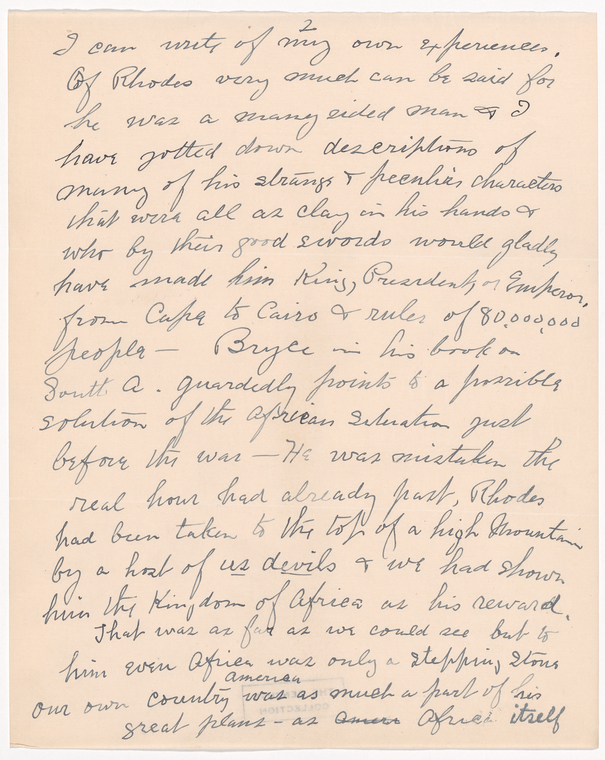 2
I can write of my own experiences.
Of Rhodes very much can be said for
he was a many sided man & I
have jotted down descriptions of
many of his strange & peculiar characters
that were all as clay in his hands &
who by their good swords would gladly
have made him King, President, or Emperor,
from Cape to Cairo & ruler of 80,000,000
people — Bryce in his book on
South A. guardedly points to a possible
solution of the African situation just
before the war — He was mistaken the
real hour had already past, Rhodes
had been taken to the top of a high Mountain
by a host of us devils & we had shown
him the Kingdom of Africa as his reward.
That was as far as we could see but to
him even Africa was only a stepping stone
america
our own country was as much a part of his
great plans – as Africa itself